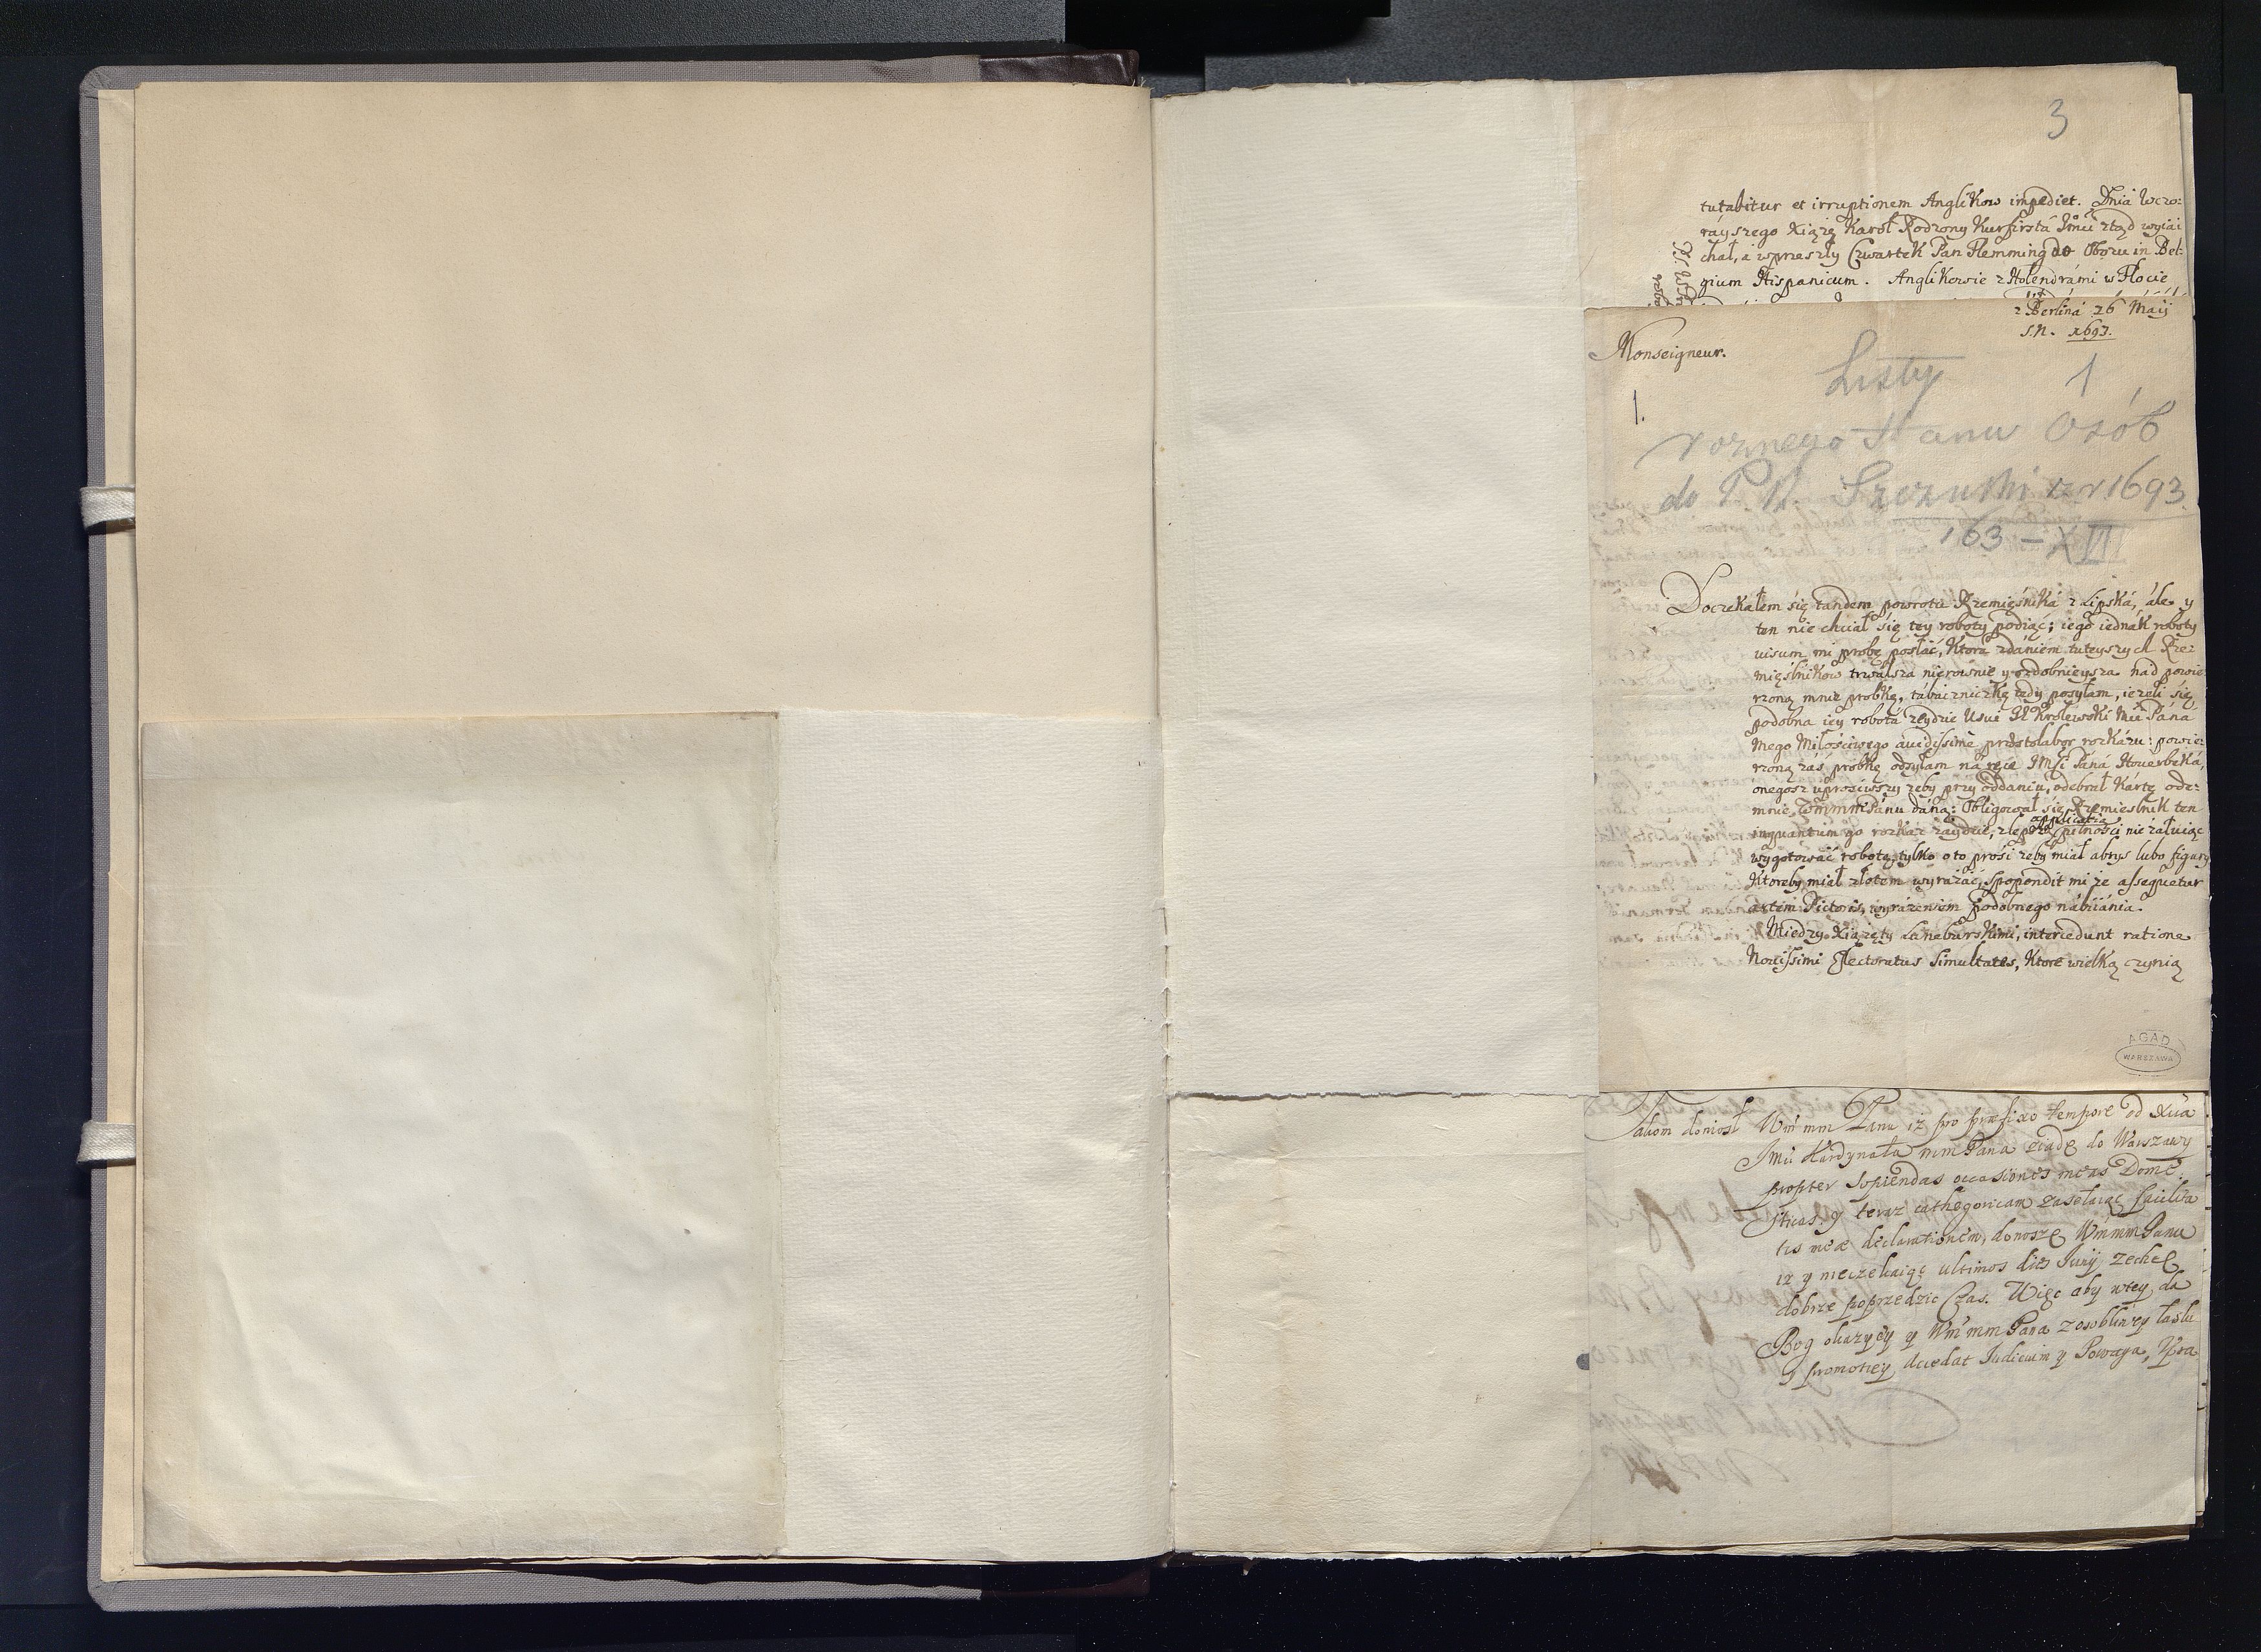 3
tutabitur et irruptionem Anglikow impediet. Dnia wczo:
rayszego Xiąże Karol Rodzony Kurfirsta Jmci ztąd wyiai
chał, a wprzeszły Czwartek Pan Flemming do Obozu in Bel:
gium Hispanicum. Anglikowie z Holendrámi w Flocie
z Berliná 26 Maÿ
S.N. 1693.
Monseigneur.
Listy 1
1.
roznego Stanu Osób
do P. Szczuki z r 1693.
163 – XVI
Doczekałem się tandem powrotu Rzemięsniká z Lipská, ále y
ten nie chciał się tey roboty podiąć; iego iednák roboty
uisum mi probę posłáć, Ktora zdániem tuteyszych Rze:
mięslnikow trwalsza nierownie y ozdobnieysza nad powie
rzoną mnie probkę, tábáczniczkę tedy posyłam, ieżeli się
podobna iey robotá zeydzie Usui Krolewski Mci Páná
mego Miłościwego auidissimè præstolabor rozkázu: powie:
rzoną zás probkę odsyłam ná ręce JMsci Páná Houerbeká,
onegosz uprosiwszy żeby przy oddániu, odebrał Kártę ode:
mnie WmmmPánu dáną: Obligował się Rzemieslnik ten
applicatią
inquantum go rozkaz zaydzie, z lepszą pilnosci nie záłuiąc
wygotowáć robotę, tylko o to prosi żeby miał abrys lubo figury
Ktoreby miał złotem wyrażáć, Spopondit mi że assequetur
artem Pictoris, wyráżeniem podobnego nábiiánia.
Miedzy Xiążęty Luneburskimi, intercedunt ratione
Novissimi Electoratus Simultates, Ktore wielką czynią
AGAD
WARSZAWA
Jakom doniosł Wm mm Panu iż pro præfixo tempore od Xcia
Jmci Kardynała mm Pana ziadę do Warszawy
propter Sopiendas occasiones meas Dome
sticas, y teraz cathegoricam zasełaiąc facilita
tis meæ declarationem, donoszę WmmmPanu
iż y nieczekaiąc ultimos dies Junij zechcę
dobrze poprzedzic Czas. Więc aby wtey da
Bog okazyey y Wm mm Pana zosobliwey łaski
y promotiey accedat Judicium y Powaga, Upra